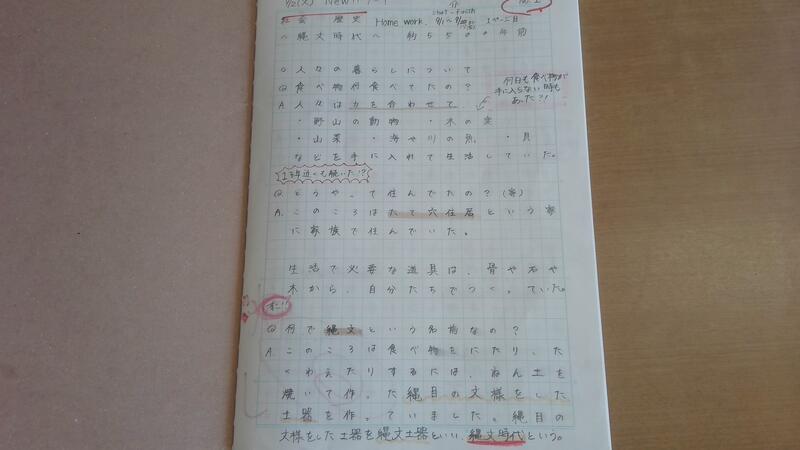 社会 歴史 Home work.
〜縄文時代〜 約5500年前
○人々の暮らしについて
Q食べ物何食べてたの?
何日も食べ物が
手に入らない時も
あった?!
A人々は力を合わせて、
・野山の動物 ・木の実
・山菜 ・海や川の魚 ・貝
などを手に入れて生活していた。
1万年近くも続いた!?
Qどうやって住んでたの?(家)
A.このころはたて穴住居という家
に家族で住んでいた。
生活で必要な道具は、骨や石や
木から、自分たちでつくっていた。
すご!!
Q何で縄文という名前なの?
A.このころは食べ物をにたり、た
くわえたりするには、ねん土を
焼いて作った縄目の文様をした
土器を作っていました。縄目の
文様をした土器を縄文土器といい、縄文時代という。